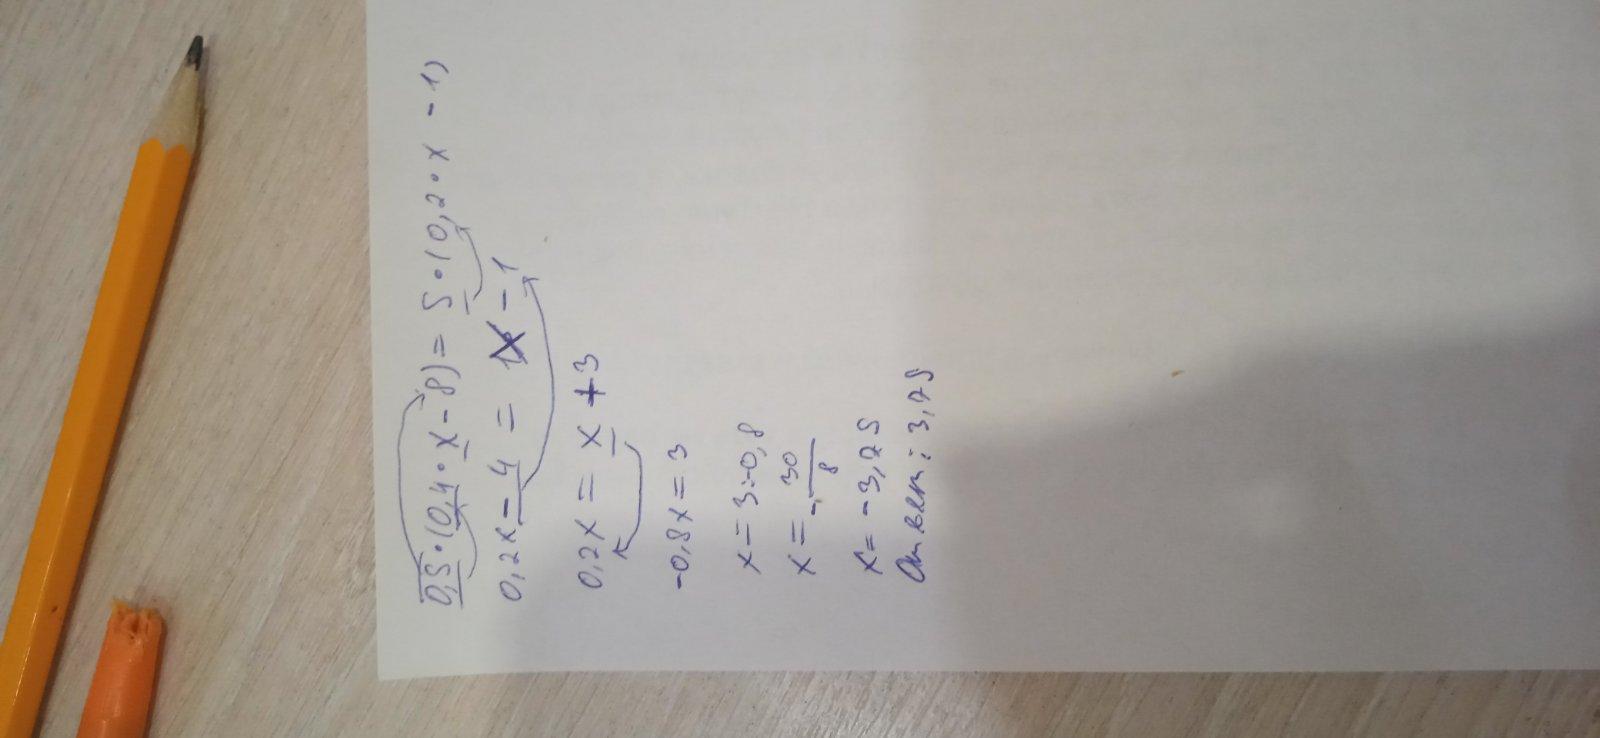 0,5·(0,4·x-8)=5·(0,2·x-1)
0,2x-4=x-1
0,2x=x+3
-0,8x=3
x=3:-0,8
x=-30/8
x=-3,75
Ответ: 3,75